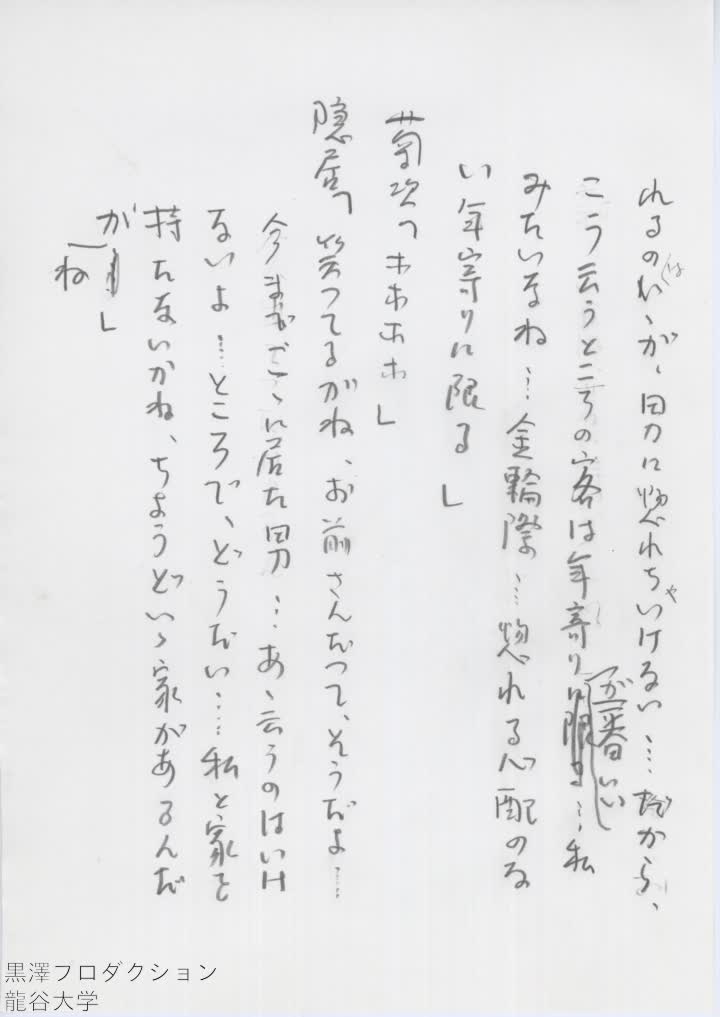 れるのはいゝが、男に惚れちやいけない…だから、
こう云うところの客は年寄りが一番いい…私
みたいなね…金輪際…惚れる心配のな
い年寄りに限る」
菊次「ホホホホ」
隠居「笑つてるがね、お前さんだつて、そうだよ…
今までこゝに居た男…あゝ云うのはいけ
ないよ…ところで、どうだい…私と家を
持たないかね、ちようどいゝ家があるんだ
がね」
黒澤プロダクション
龍谷大学